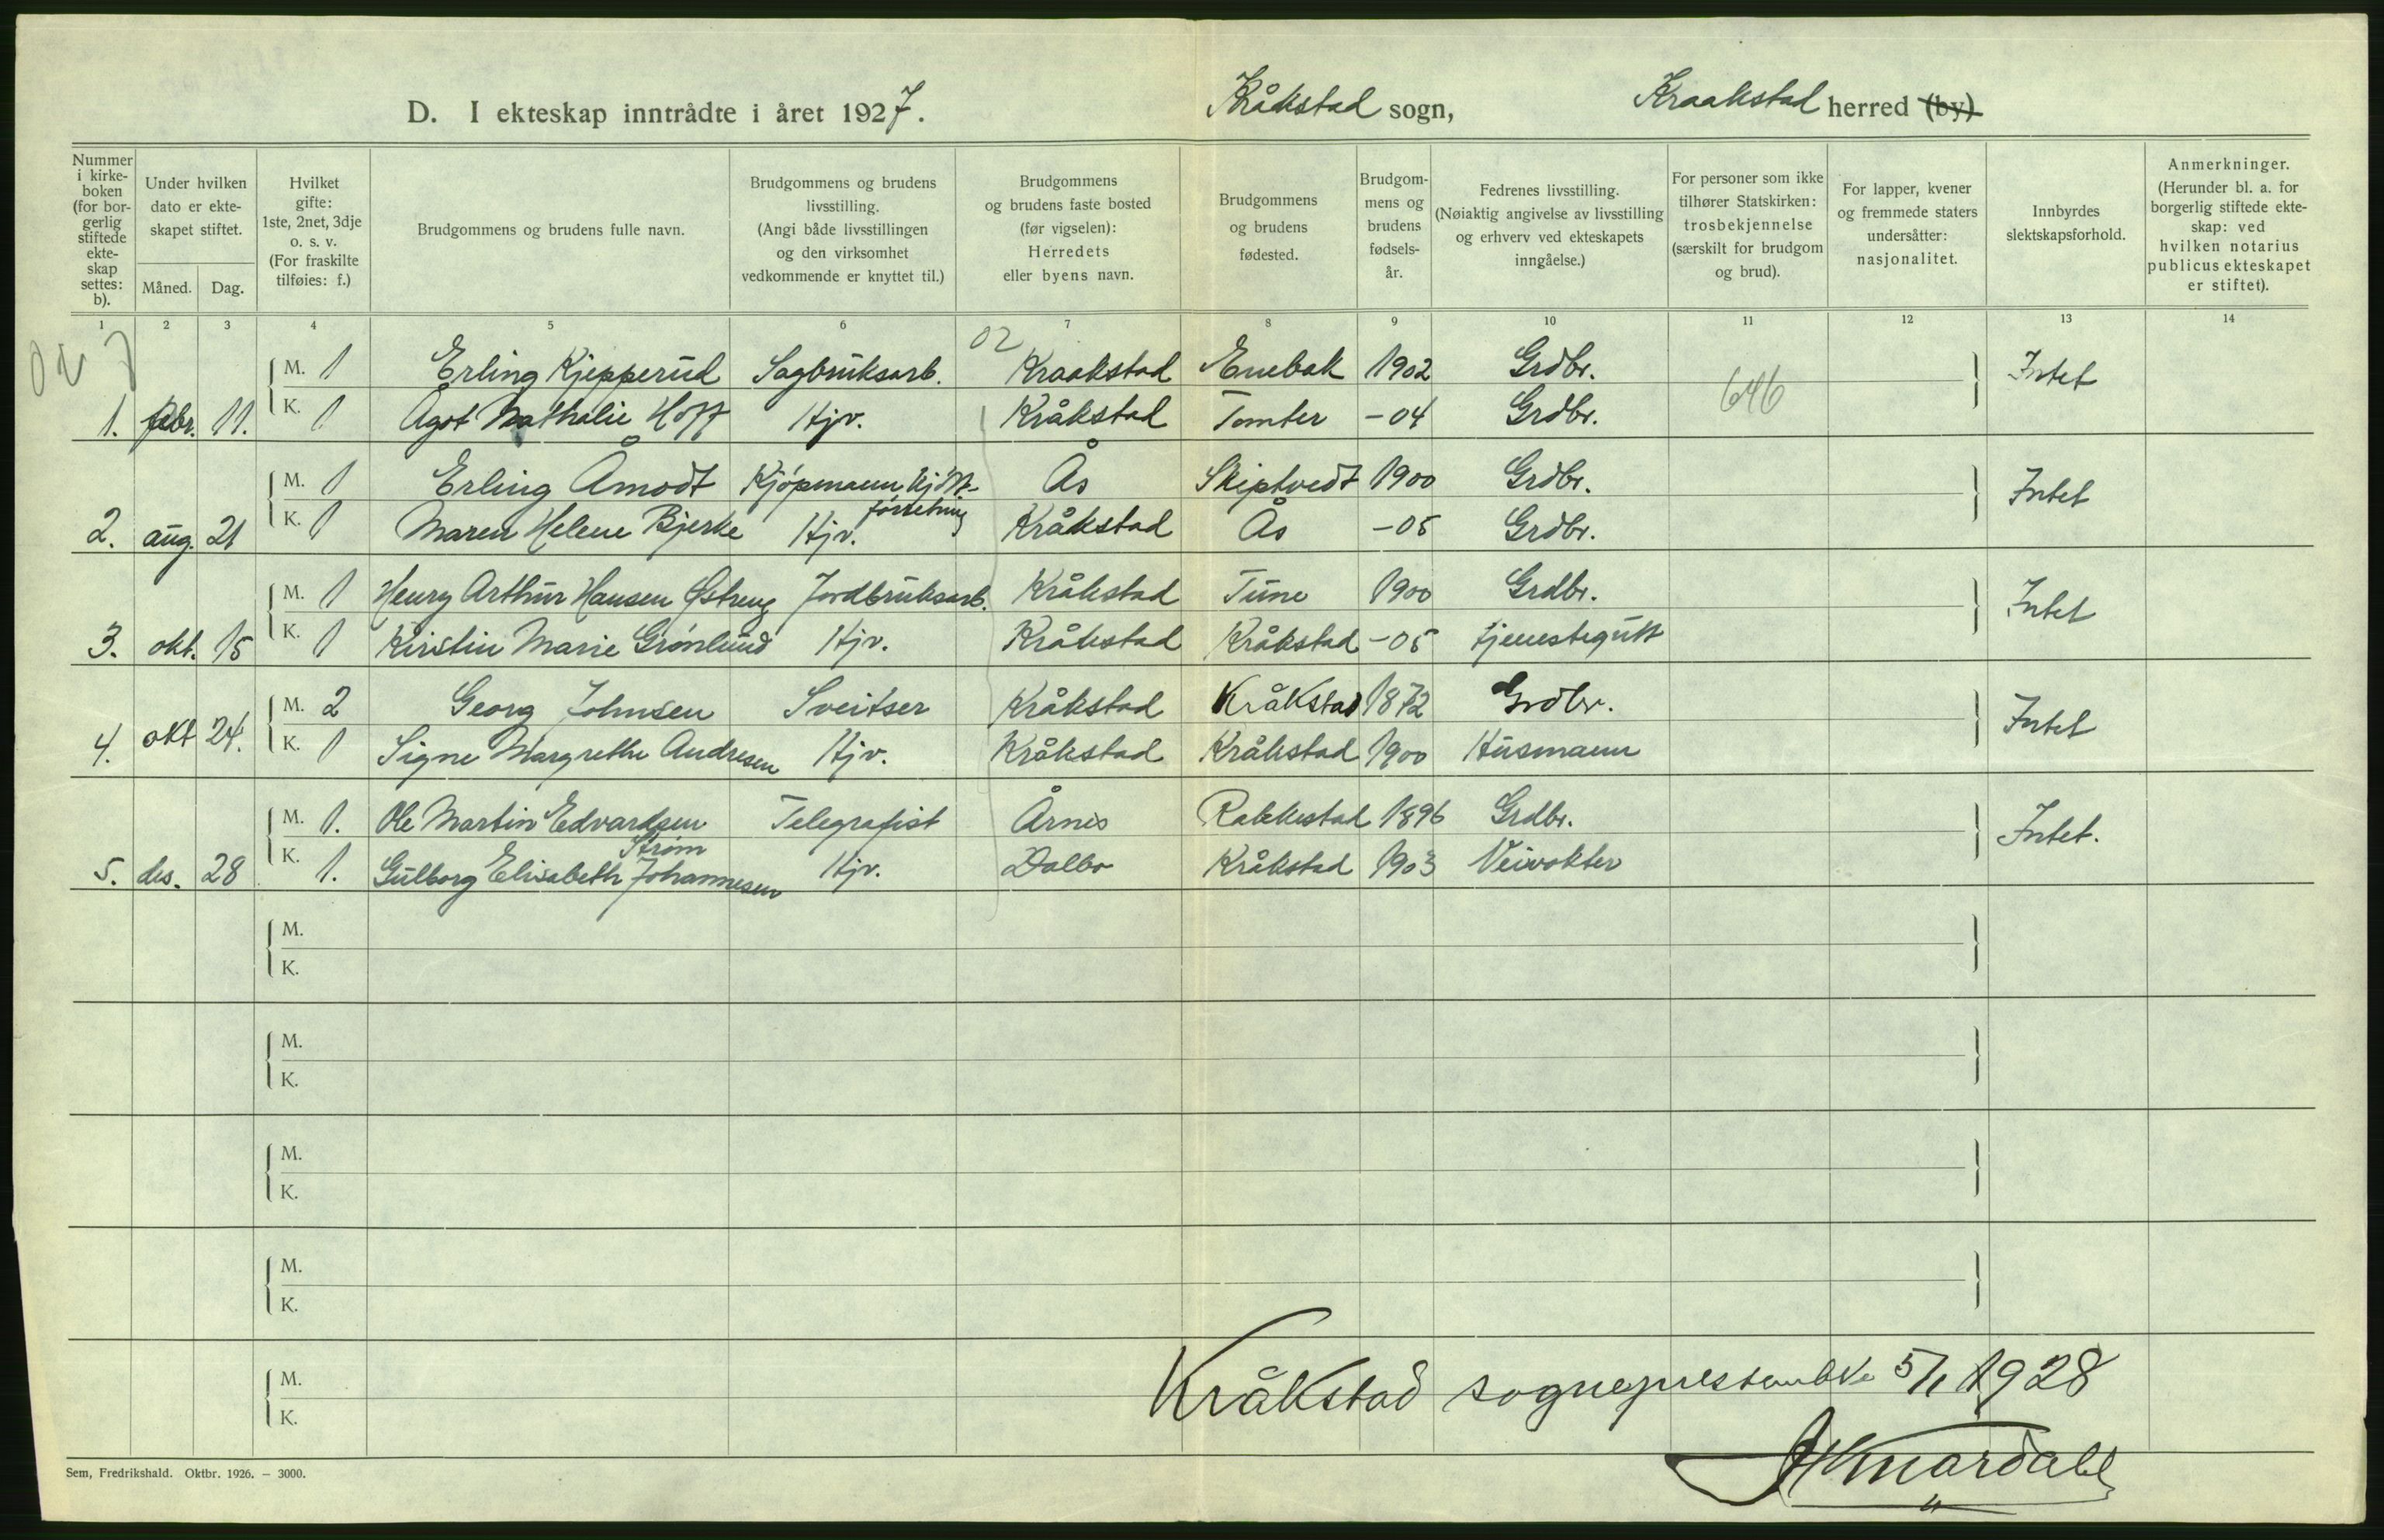 D. I ekteskap inntrådte i året 1927. Kråkstad sogn, Kraakstad herred (by)
Nummer i kirkeboken (for borgerlig stiftede ekteskap settes: b).
Under hvilken dato er ekteskapet stiftet.
Måned. Dag.
Hvilket gifte: 1ste, 2net, 3dje o. s. v. (For fraskilte tilføies: f.)
Brudgommens og brudens fulle navn.
Brudgommens og brudens livsstilling. (Angi både livsstillingen og den virksomhet vedkommende er knyttet til.)
Brudgommens og brudens faste bosted (før vigselen): Herredets eller byens navn.
Brudgommens og brudens fødested.
Brudgommens og brudens fødselsår.
Fedrenes livsstilling. (Nøiaktig angivelse av livsstilling og erhverv ved ekteskapets inngåelse.)
For personer som ikke tilhører Statskirken: trosbekjennelse (særskilt for brudgom og brud).
For lapper, kvener og fremmede staters undersåtter: nasjonalitet.
Innbyrdes slektskapsforhold.
Anmerkninger. (Herunder bl. a. for borgerlig stiftede ekteskap: ved hvilken notarius publicus ekteskapet er stiftet).
1 2 3 4 5 6 7 8 9 10 11 12 13 14
02
M. 1 Erling Kjepperud Sagbruksarb. Kraakstad Enebak 1902 Grdbr. 646 Intet
1. febr. 11. K. 1 Ågot Nathalie Hoff Hjv. Kråkstad Tomter -04 Grdbr.
M. 1 Erling Åmodt Kjøpmann kjøtt- Ås Skiptvedt 1900 Grdbr. Intet
forretning
2. aug. 21 K. 1 Maren Helene Bjerke Hjv. Kråkstad Ås -05 Grdbr.
M. 1 Henry Arthur Hansen Østreng Jordbruksarb. Kråkstad Tune 1900 Grdbr. Intet
3. okt. 15 K. 1 Kirstin Marie Grønlund Hjv. Kråkstad Kråkstad -05 tjenestegutt
M. 2 Georg Johnsen Sveitser Kråkstad Kråkstad 1872 Grdbr. Intet
4. okt 24. K. 1 Signe Margrethe Andresen Hjv. Kråkstad Kråkstad 1900 Husmann
M. 1. Ole Martin Edvardsen Telegrafist Årnes Rakkestad 1896 Grdbr. Intet.
Strøm
5. des. 28 K. 1. Gulborg Elisabeth Johannesen Hjv. Dalbo Kråkstad 1903 Veivokter
M.
K.
M.
K.
M.
K.
M.
K.
M.
K.
Kråkstad sogneprestembede 5/1 1928
Sem, Fredrikshald. Oktbr. 1926. — 3000.